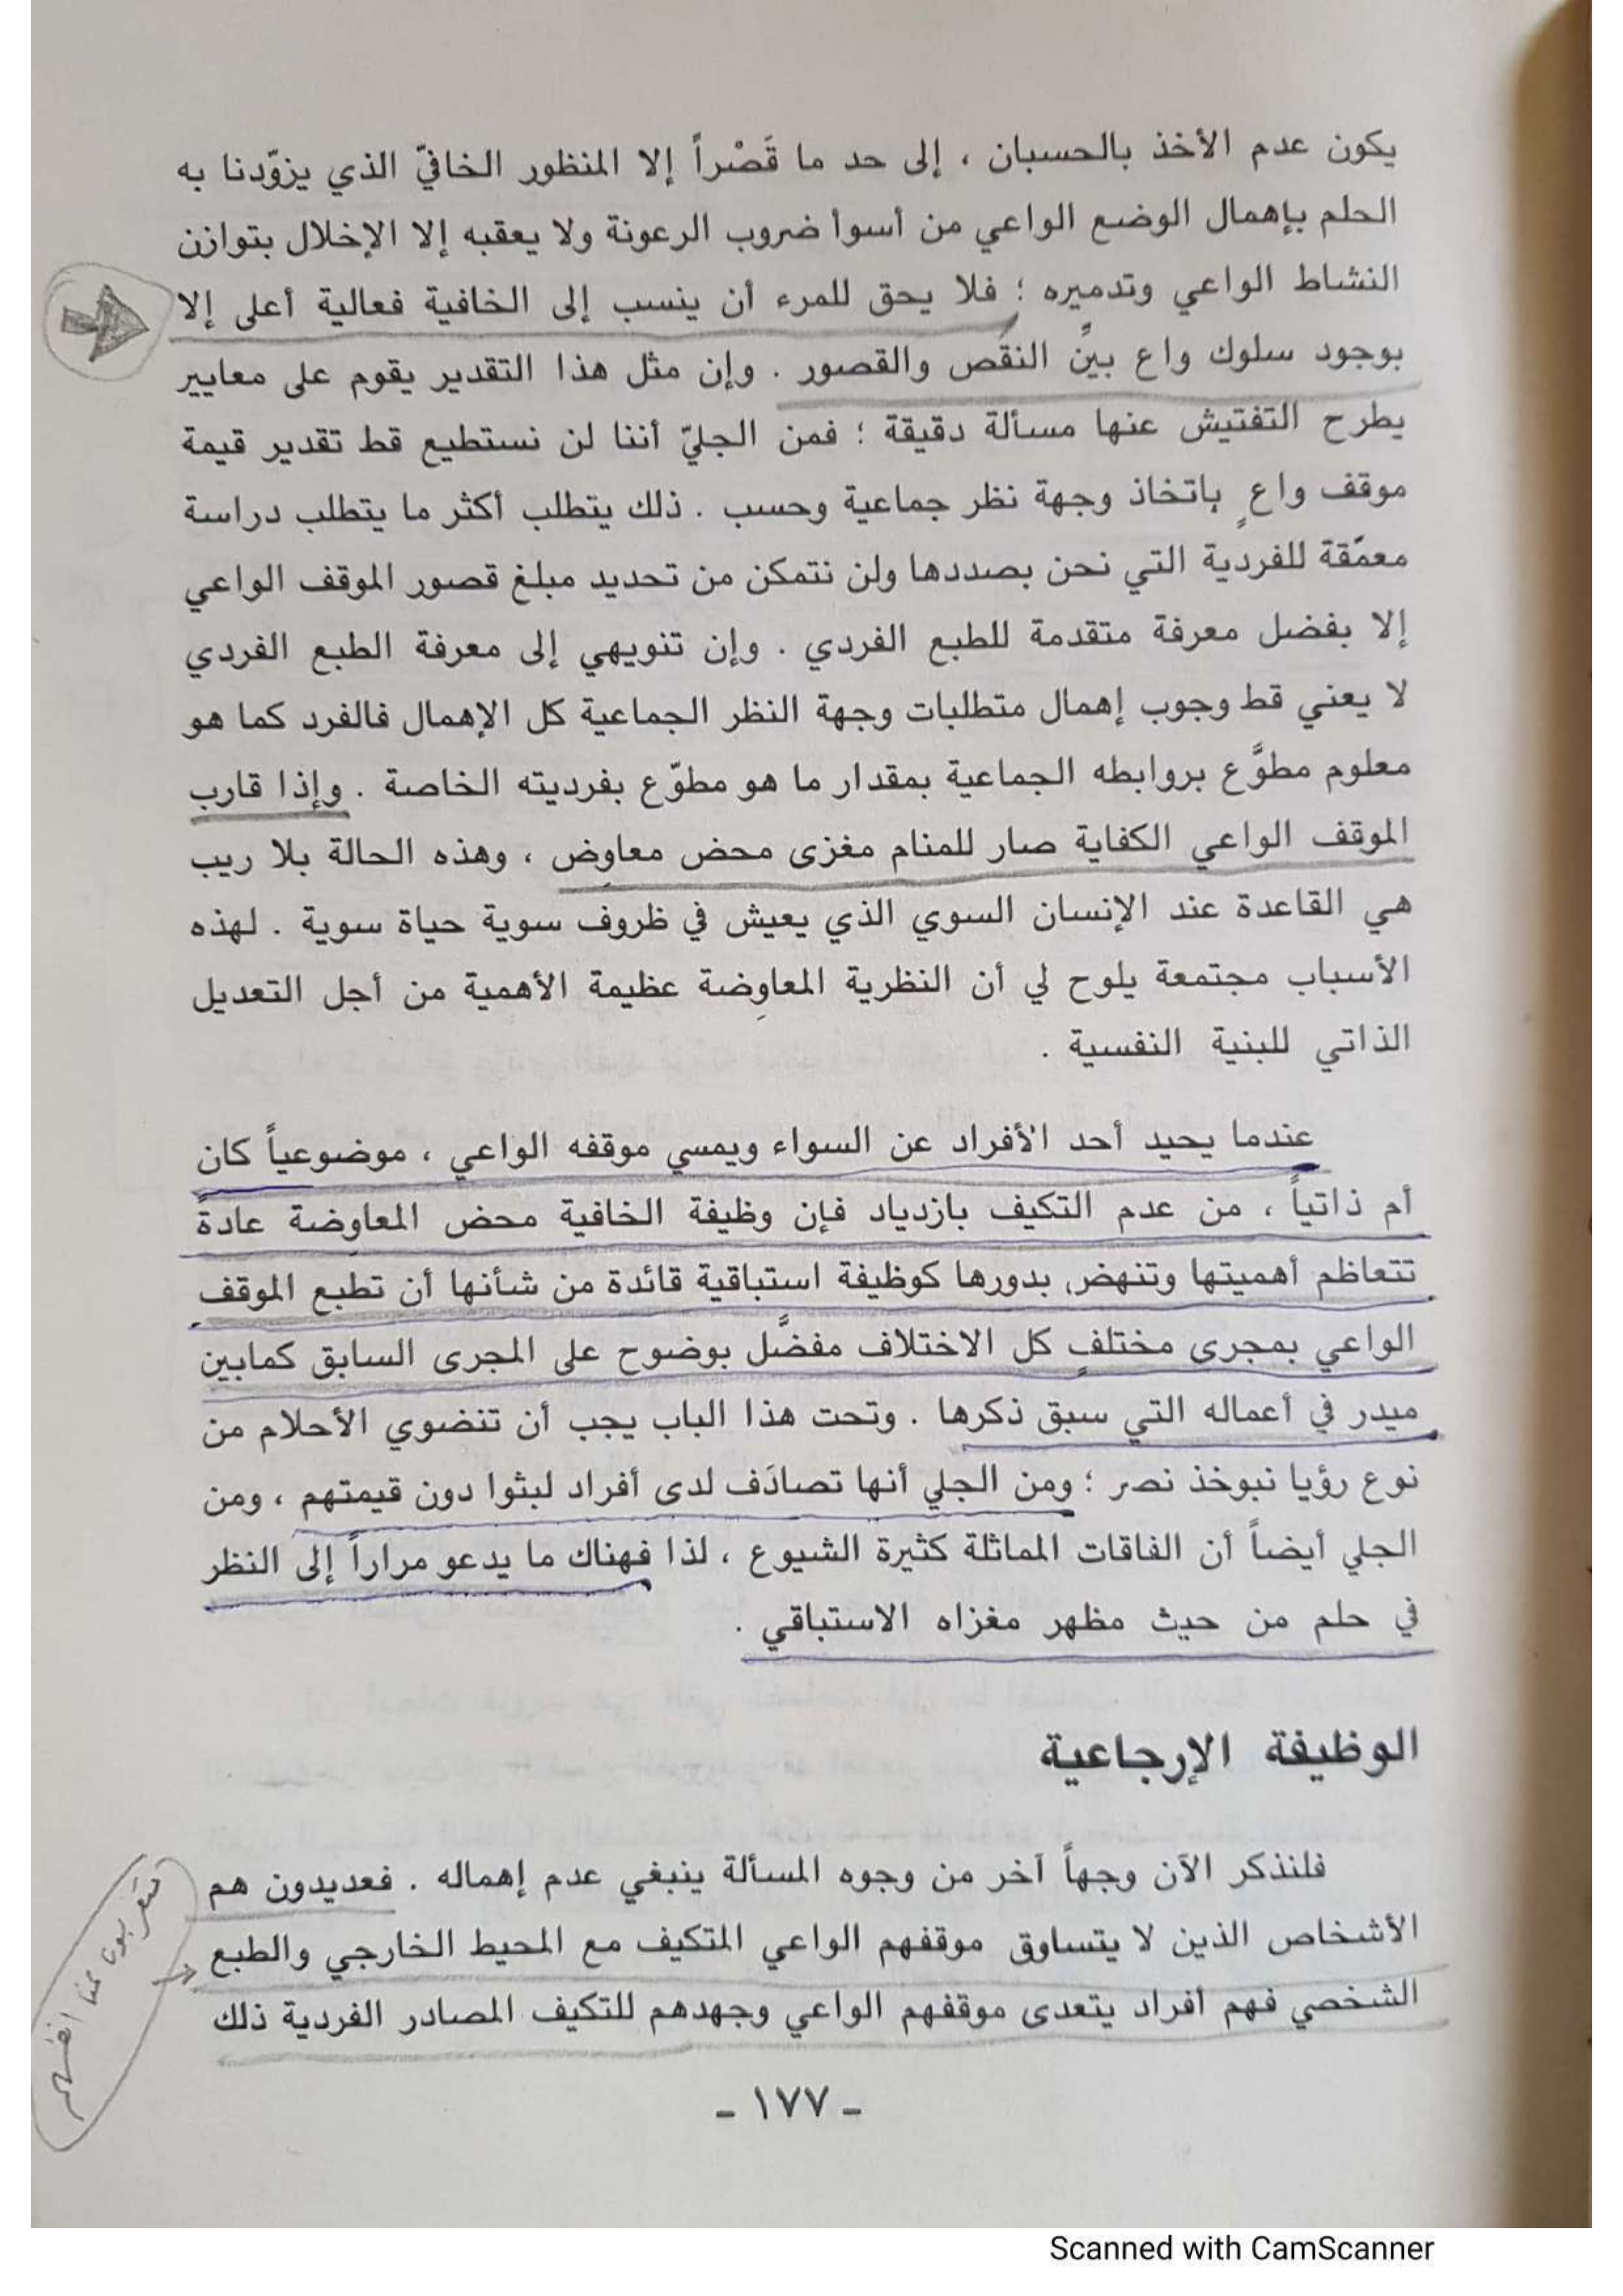 يكون عدم الأخذ بالحسبان ، إلى حد ما قَصْراً إلا المنظور الخافيّ الذي يزوّدنا به
الحلم بإهمال الوضع الواعي من أسوأ ضروب الرعونة ولا يعقبه إلا الإخلال بتوازن
النشاط الواعي وتدميره ؛ فلا يحق للمرء أن ينسب إلى الخافية فعالية أعلى إلا
بوجود سلوك واع بيِّن النقص والقصور . وإن مثل هذا التقدير يقوم على معايير
يطرح التفتيش عنها مسألة دقيقة ؛ فمن الجليّ أننا لن نستطيع قط تقدير قيمة
موقف واعٍ باتخاذ وجهة نظر جماعية وحسب . ذلك يتطلب أكثر ما يتطلب دراسة
معمّقة للفردية التي نحن بصددها ولن نتمكن من تحديد مبلغ قصور الموقف الواعي
إلا بفضل معرفة متقدمة للطبع الفردي . وإن تنويهي إلى معرفة الطبع الفردي
لا يعني قط وجوب إهمال متطلبات وجهة النظر الجماعية كل الإهمال فالفرد كما هو
معلوم مطوَّع بروابطه الجماعية بمقدار ما هو مطوّع بفرديته الخاصة . وإذا قارب
الموقف الواعي الكفاية صار للمنام مغزى محض معاوِض ، وهذه الحالة بلا ريب
هي القاعدة عند الإنسان السوي الذي يعيش في ظروف سوية حياة سوية . لهذه
الأسباب مجتمعة يلوح لي أن النظرية المعاوِضة عظيمة الأهمية من أجل التعديل
الذاتي للبنية النفسية .
عندما يحيد أحد الأفراد عن السواء ويمسي موقفه الواعي ، موضوعياً كان
أم ذاتياً ، من عدم التكيف بازدياد فإن وظيفة الخافية محض المعاوِضة عادةً
تتعاظم أهميتها وتنهض بدورها كوظيفة استباقية قائدة من شأنها أن تطبع الموقف
الواعي بمجرى مختلفٍ كل الاختلاف مفضَّل بوضوح على المجرى السابق كمابين
ميدر في أعماله التي سبق ذكرها . وتحت هذا الباب يجب أن تنضوي الأحلام من
نوع رؤيا نبوخذ نصر ؛ ومن الجلي أنها تصادَف لدى أفراد لبثوا دون قيمتهم ، ومن
الجلي أيضاً أن الفاقات المماثلة كثيرة الشيوع ، لذا فهناك ما يدعو مراراً إلى النظر
في حلم من حيث مظهر مغزاه الاستباقي .
الوظيفة الإرجاعية
فلنذكر الآن وجهاً آخر من وجوه المسألة ينبغي عدم إهماله . فعديدون هم
الأشخاص الذين لا يتساوق موقفهم الواعي المتكيف مع المحيط الخارجي والطبع
الشخصي فهم أفراد يتعدى موقفهم الواعي وجهدهم للتكيف المصادر الفردية ذلك
- ١٧٧ -
Scanned with CamScanner